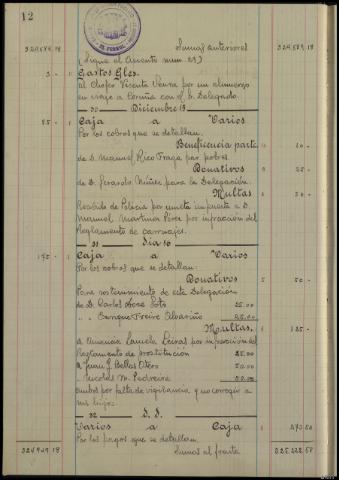 12
324.959.18 Sumas anteriores 324.959.18
(Sigue el Asiento num 29)
3 - Gastos Gles.
al Chofer Vicente por un almuerzo
en viaje a Coruña con el S. Delegado
30 Diciembre 15
85 - Caja a Varios
Por los cobros que se detallan.
Beneficencia parte 10 -
de D. Manuel Rico Fraga por pobres
Donativos 25 -
de D. Gerardo Núñez para la Delegación
Multas 50 -
Recibido de Policia por multa impuesta a D.
Manuel Martinez Pérez por infracción del
Reglamento de carruajes.
31 Dia 16
175 - Caja a Varios
Por los cobros que se detallan:
Donativos 50 -
Para sostenimiento de esta Delegación
de D. Carlos Soto 25.00
" " Enrique Freire Albariño 25.00
Multas. 125 -
a Amancia Lamela Leiras por infracción del
Reglamento de prostitución 25.00
a Juan J. Bellas Otero 50.00
" Nicolas M. Pedreira 50.00
ambos por falta de vigilancia y no corregir a
sus hijos.
32 d. d.
Varios a Caja
Por los pagos que se detallan.
Sumas al frente